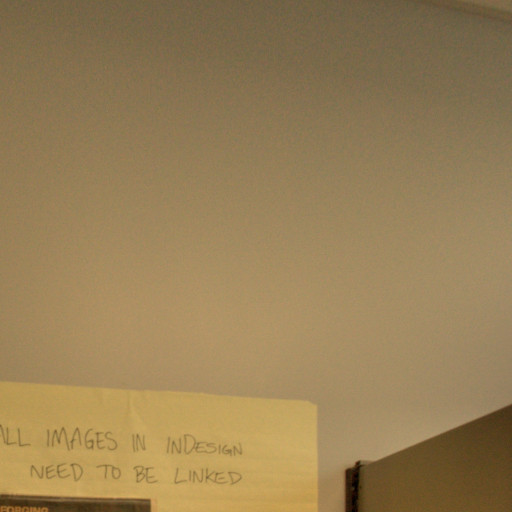 ALL IMAGES IN INDESIGN
NEED TO BE LINKED
FORGING